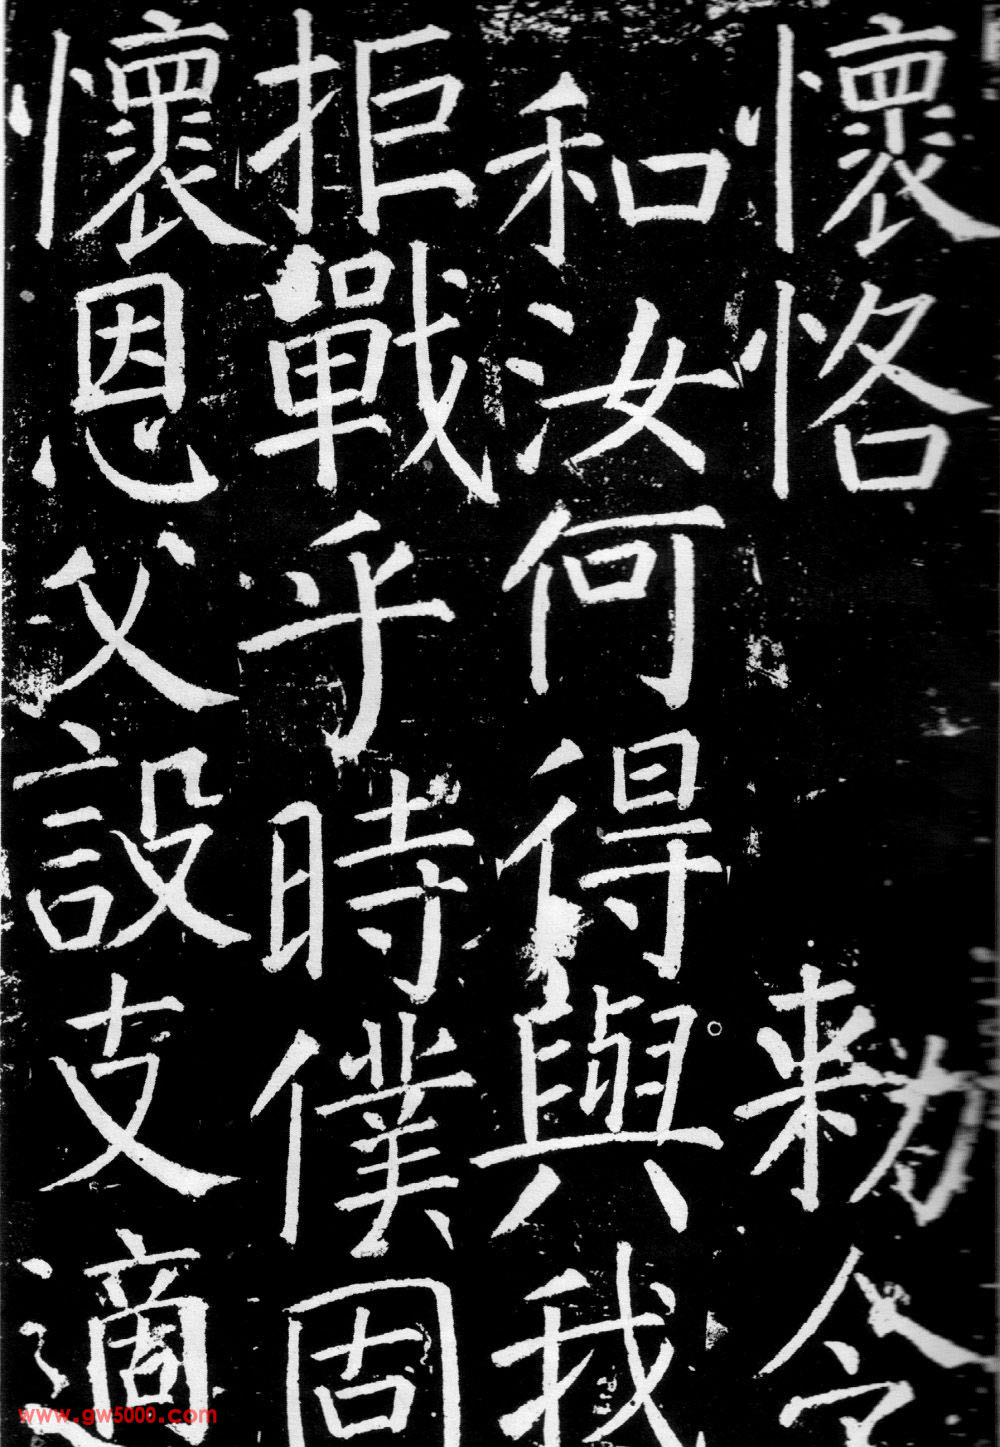 懷恪 勑令
和汝何得與我
拒戰乎時僕固
懷恩父設支適
www.gw5000.com